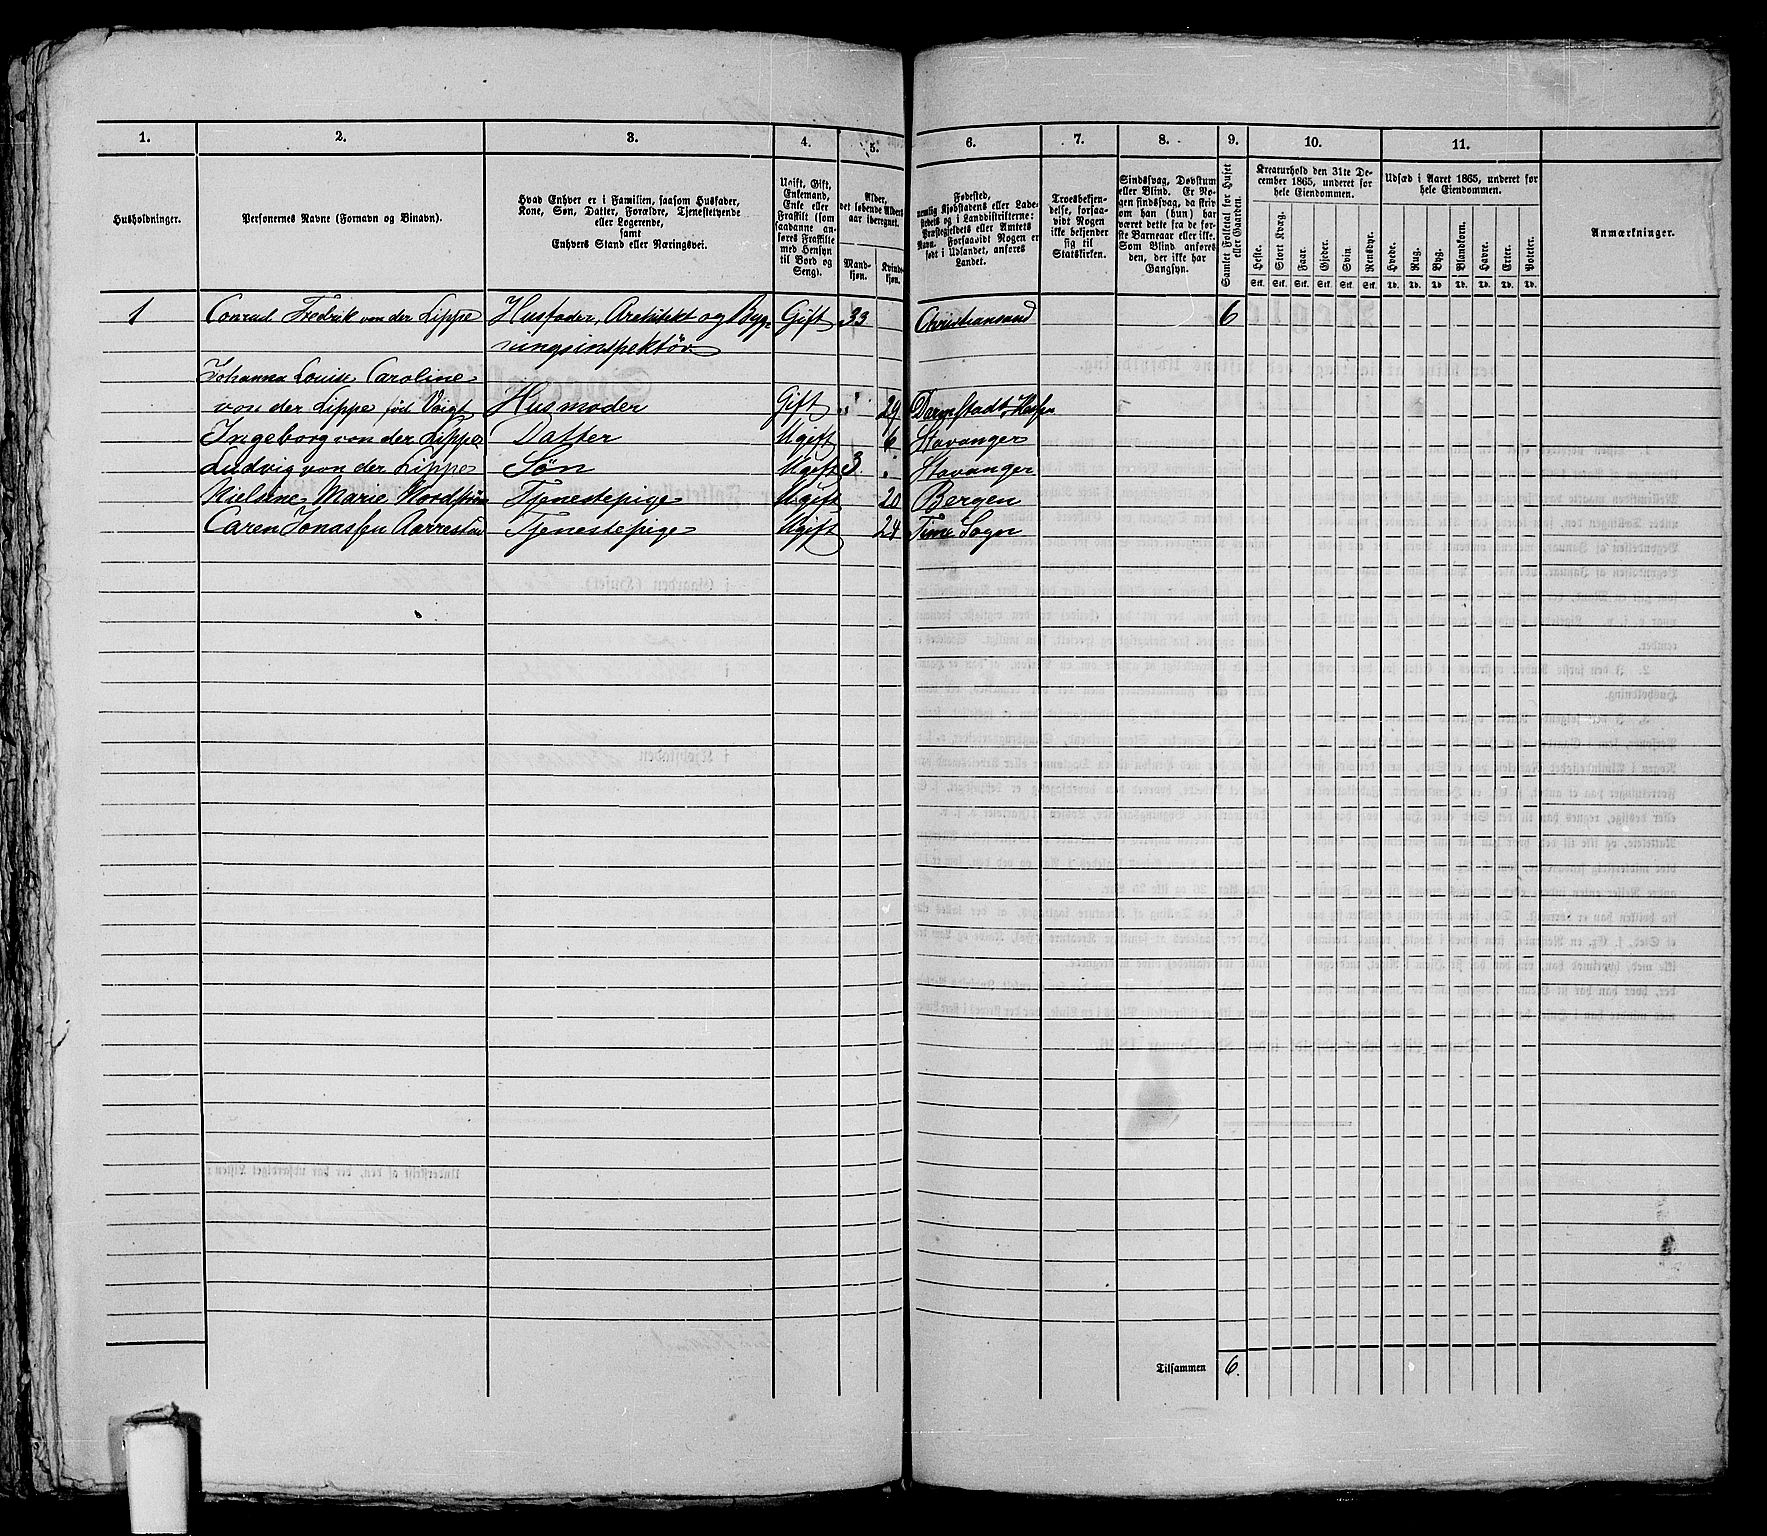 1. 2. 3. 4. 5. 6. 7. 8. 9. 10. 11.
Husholdninger.
Personernes Navne (Fornavn og Binavn).
Hvad Enhver er i Familien, saasom Husfader,
Kone, Søn, Datter, Forældre, Tjenestetyende
eller Logerende,
samt
Enhvers Stand eller Næringsvei.
Ugift, Gift,
Enkemand,
Enke eller
Fraskilt (som
saadanne an-
føres Fraskilte
med Hensyn
til Bord og
Seng).
Alder,
det løbende Alders-
aar iberegnet.
Mand-
kjøn.
Kvind-
kjøn.
Fødested,
nemlig Kjøbstadens eller Lade-
stedets og i Landdistrikterne:
Præstegjeldets eller Amtets
Navn. Forsaavidt Nogen er
født i Udlandet, anføres
Landet.
Troesbekjen-
delse, forsaa-
vidt Nogen
ikke bekjender
sig til
Statskirken.
Sindssvag, Døvstum
eller Blind. Er No-
gen sindssvag, da skriv
om han (hun) har
været dette fra de før-
ste Barneaar eller ikke.
Som Blind anføres
den, der ikke har
Gangsyn.
Samlet Folketal for Huset
eller Gaarden.
Kreaturhold den 31te De-
cember 1865, underet for
hele Eiendommen.
Heste. Stort Kvæg. Faar. Gjeder. Svin. Rensdyr.
Stk. Stk. Stk. Stk. Stk. Stk.
Udsæd i Aaret 1865, underet for
hele Eiendommen.
Hvede. Rug. Byg. Blandkorn. Havre. Erter. Poteter.
Td. Td. Td. Td. Td. Td. Td.
Anmærkninger.
1 Conrad Fredrik von der Lippe Husfader, Arckitekt og Byg- Gift 33 Christiansand 6
ningsinspektør
Johanna Louise Caroline
von der Lippe fød Voigt Husmoder Gift " 29 Darmstadt, Hessen
Ingeborg von der Lippe Datter Ugift 6 Stavanger
Ludvig von der Lippe Søn Ugift 3 " Stavanger
Nielsine Marie Nordstrøm Tjenestepige Ugift 20 Bergen
Caren Jonassen Aarrestad Tjenestepige Ugift 24 Time Sogn
Tilsammen 6.